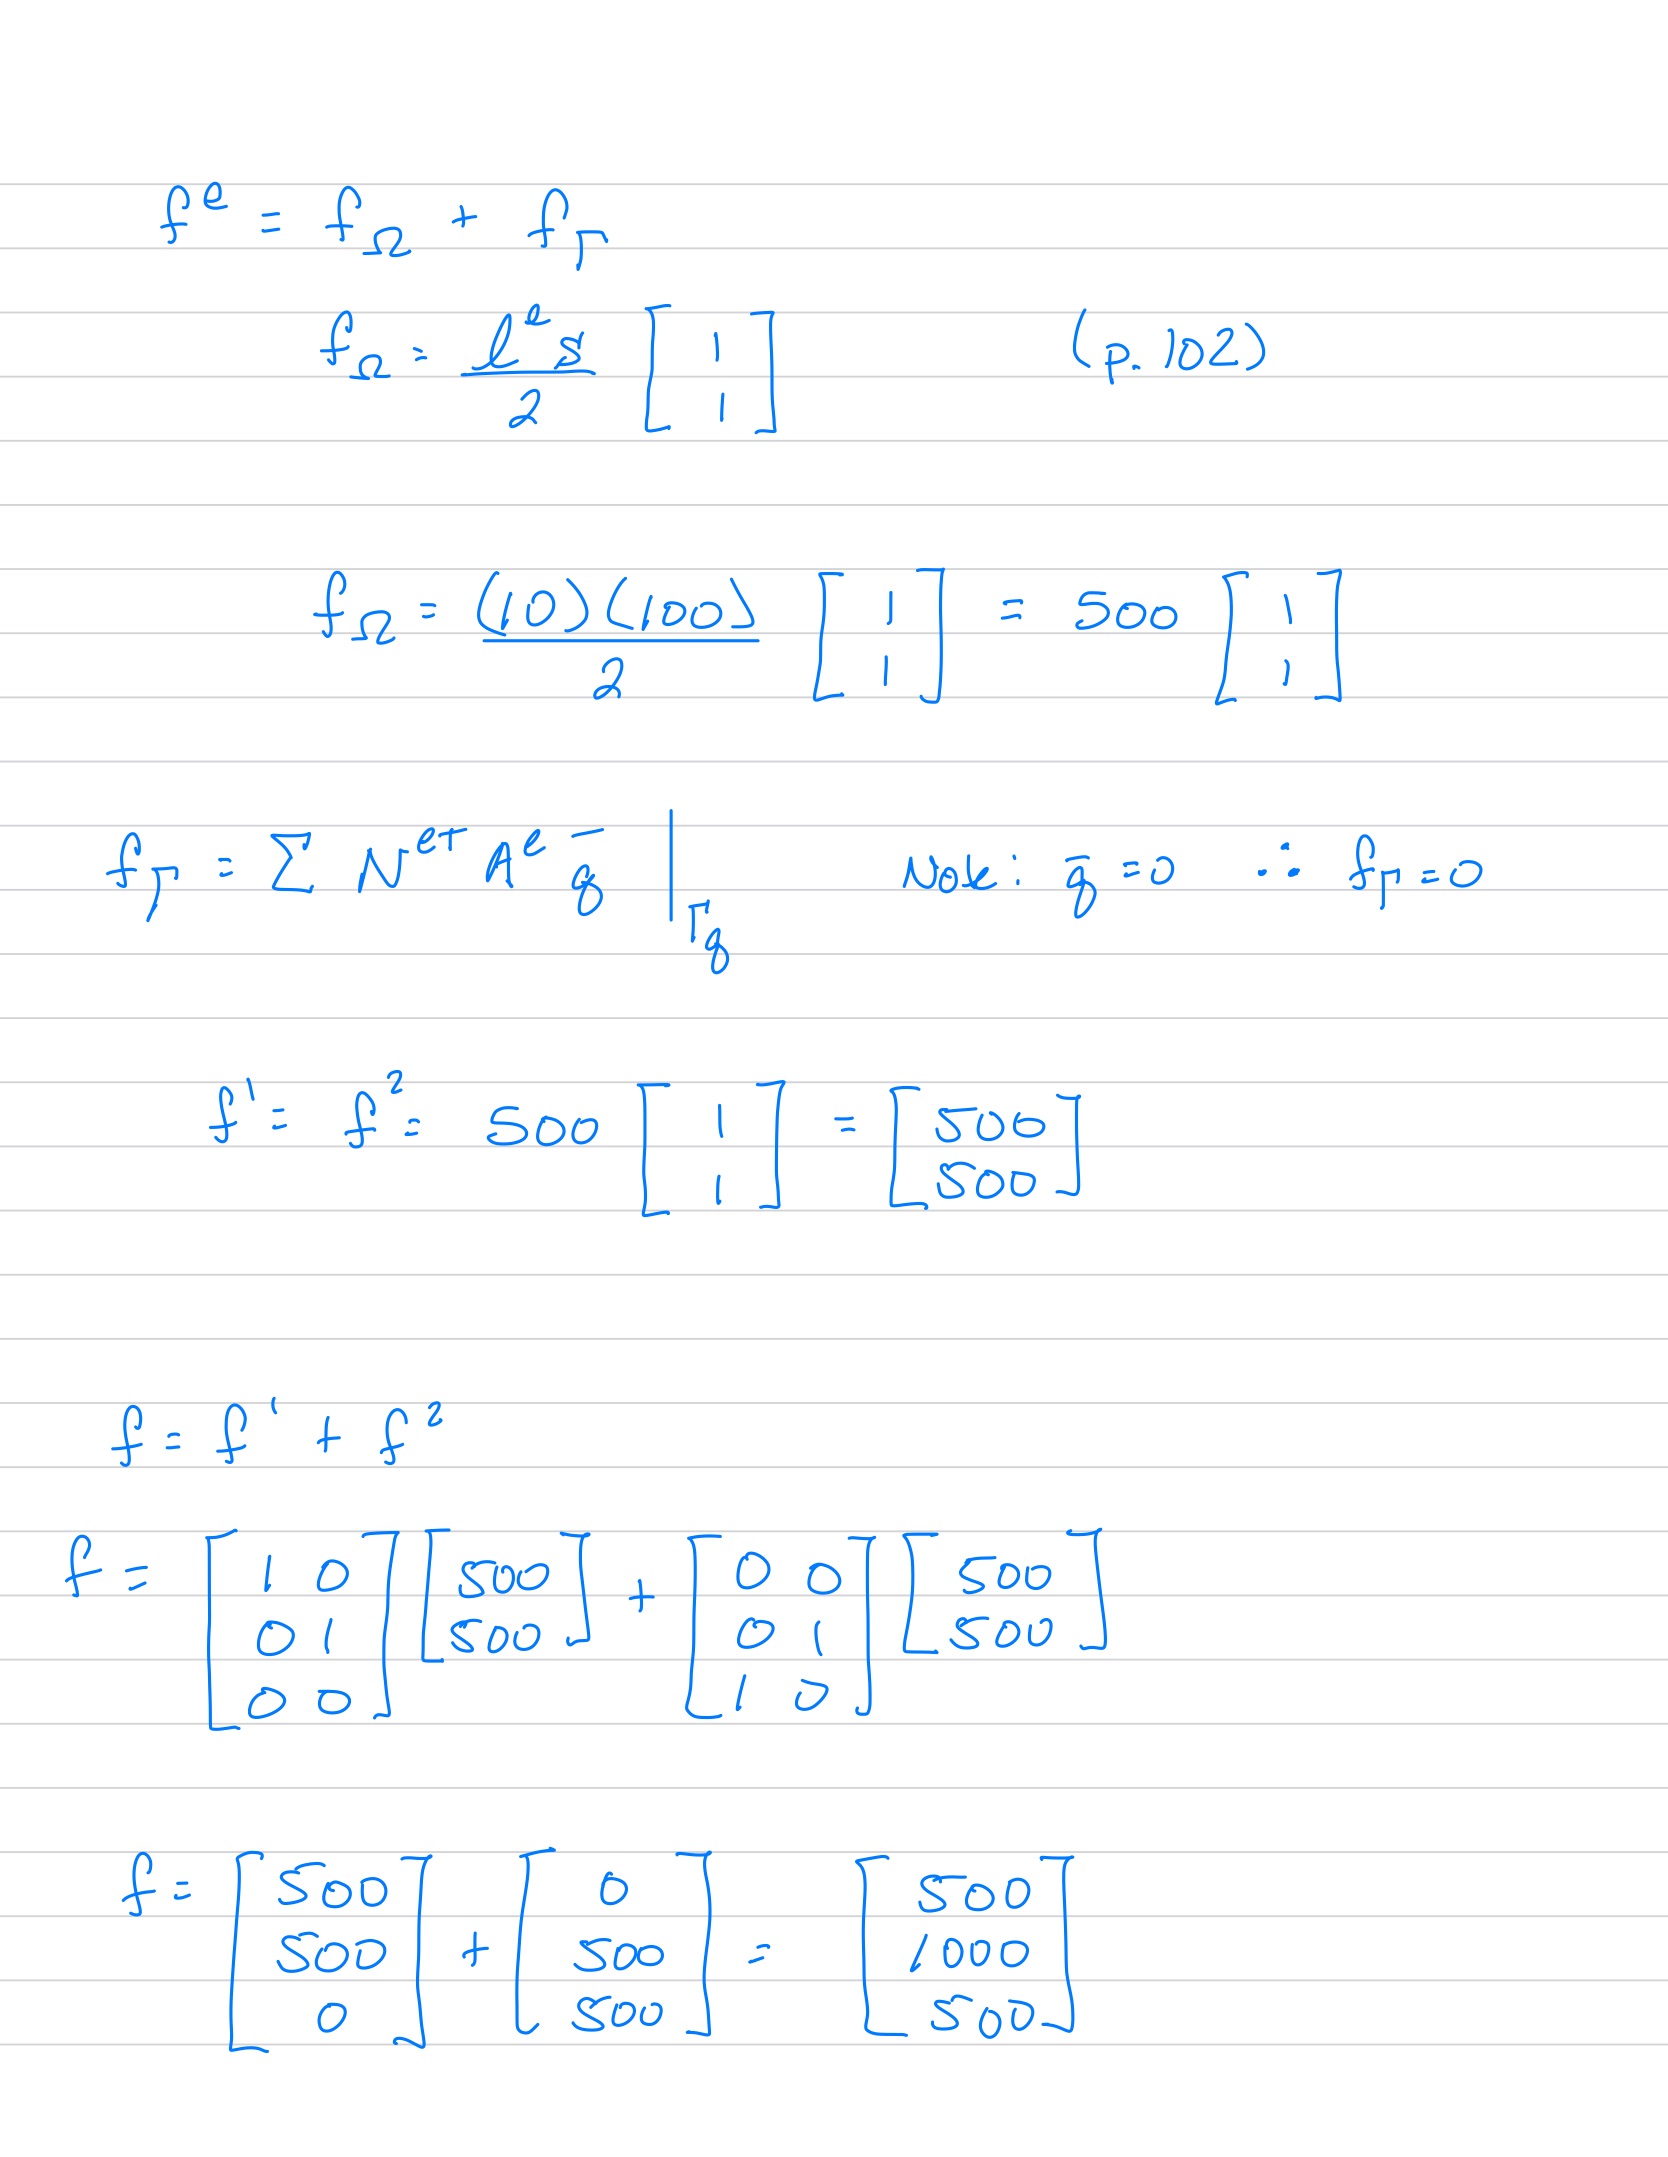 f^e = f_Ω + f_Γ
f_Ω = l^e s / 2 [1; 1] (p. 102)
f_Ω = (10)(100) / 2 [1; 1] = 500 [1; 1]
f_Γ = Σ N^eT A^e q̄ |_Γq Note: q̄ = 0 ∴ f_Γ = 0
f^1 = f^2 = 500 [1; 1] = [500; 500]
f = f^1 + f^2
f = [1 0; 0 1; 0 0] [500; 500] + [0 0; 0 1; 1 0] [500; 500]
f = [500; 500; 0] + [0; 500; 500] = [500; 1000; 500]